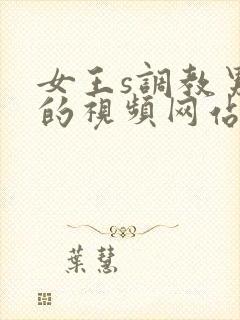 女王s調教男
的視頻网佔
葉慧